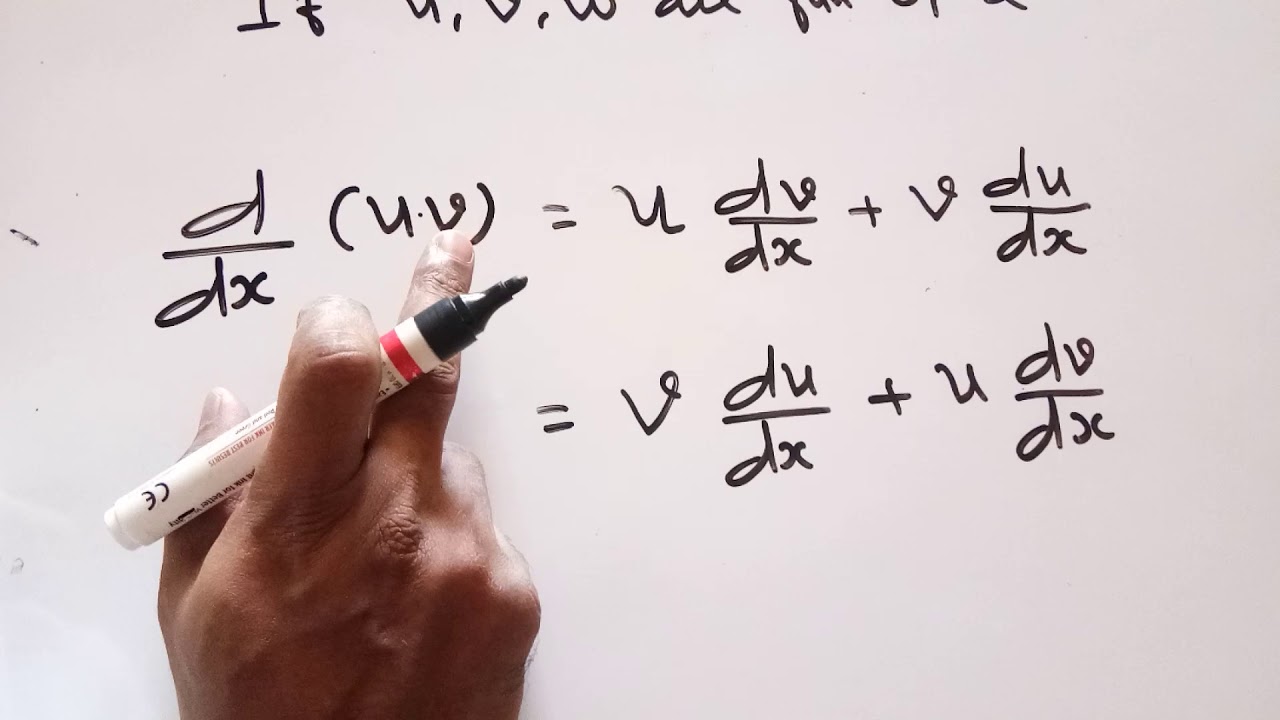 If u, v, w are fun of x
d/dx (u·v) = u dv/dx + v du/dx
= v du/dx + u dv/dx
CE